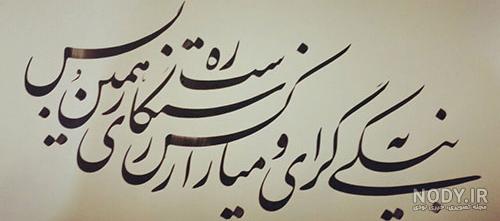 به نیکی گرای و میازار کس
ره رستگاری همین است و بس
NODY.IR
مجله تصویری، خبری نودی